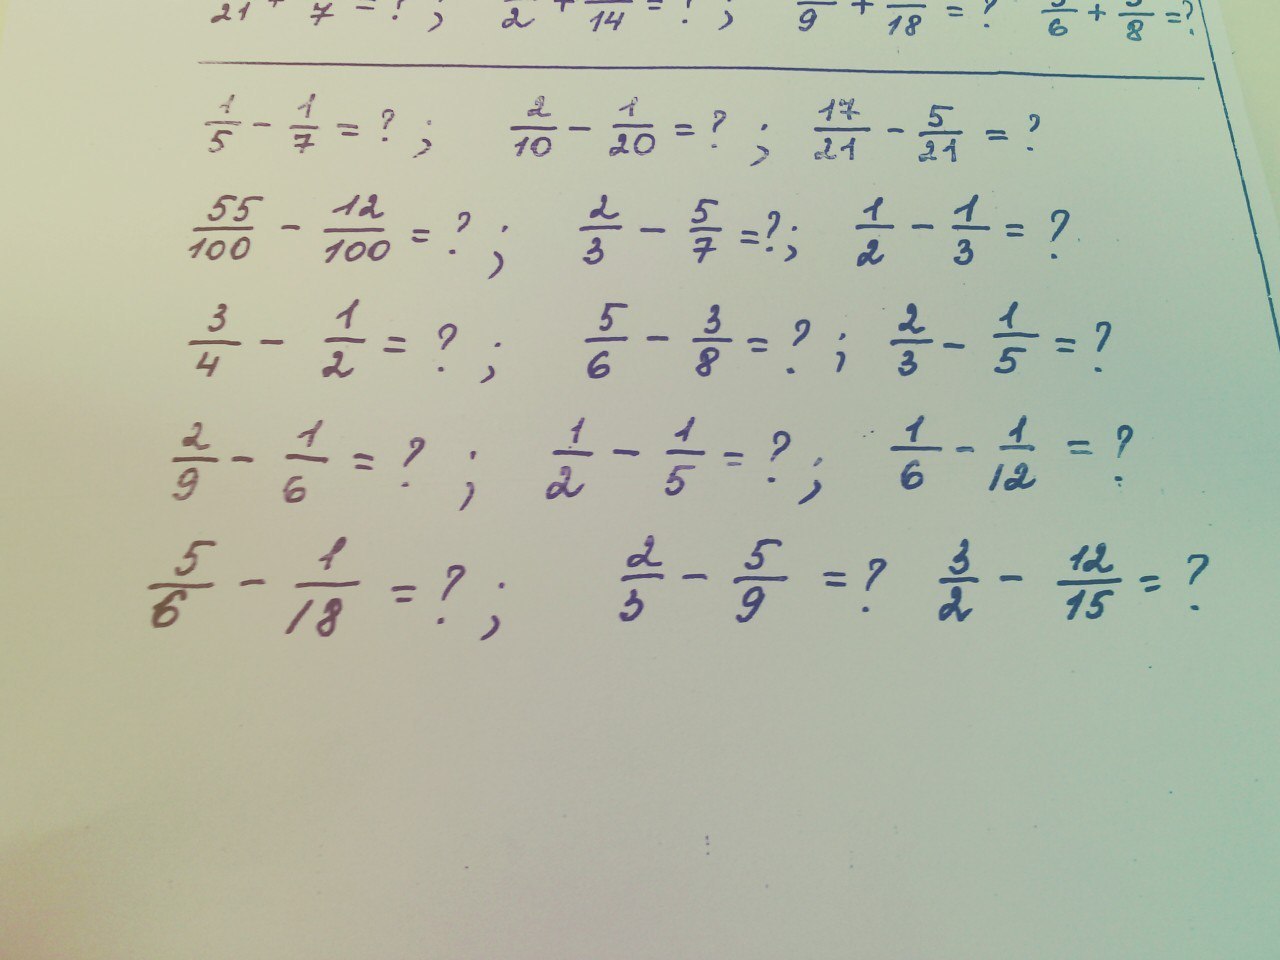 21 + 7 = ? ; 2 + 14 = ? ; 9 + 18 = ? 6 + 8 = ?
1/5 - 1/7 = ? ; 2/10 - 1/20 = ? ; 17/21 - 5/21 = ?
55/100 - 12/100 = ? ; 2/3 - 5/7 = ? ; 1/2 - 1/3 = ?
3/4 - 1/2 = ? ; 5/6 - 3/8 = ? ; 2/3 - 1/5 = ?
2/9 - 1/6 = ? ; 1/2 - 1/5 = ? ; 1/6 - 1/12 = ?
5/6 - 1/18 = ? ; 2/3 - 5/9 = ? 3/2 - 12/15 = ?